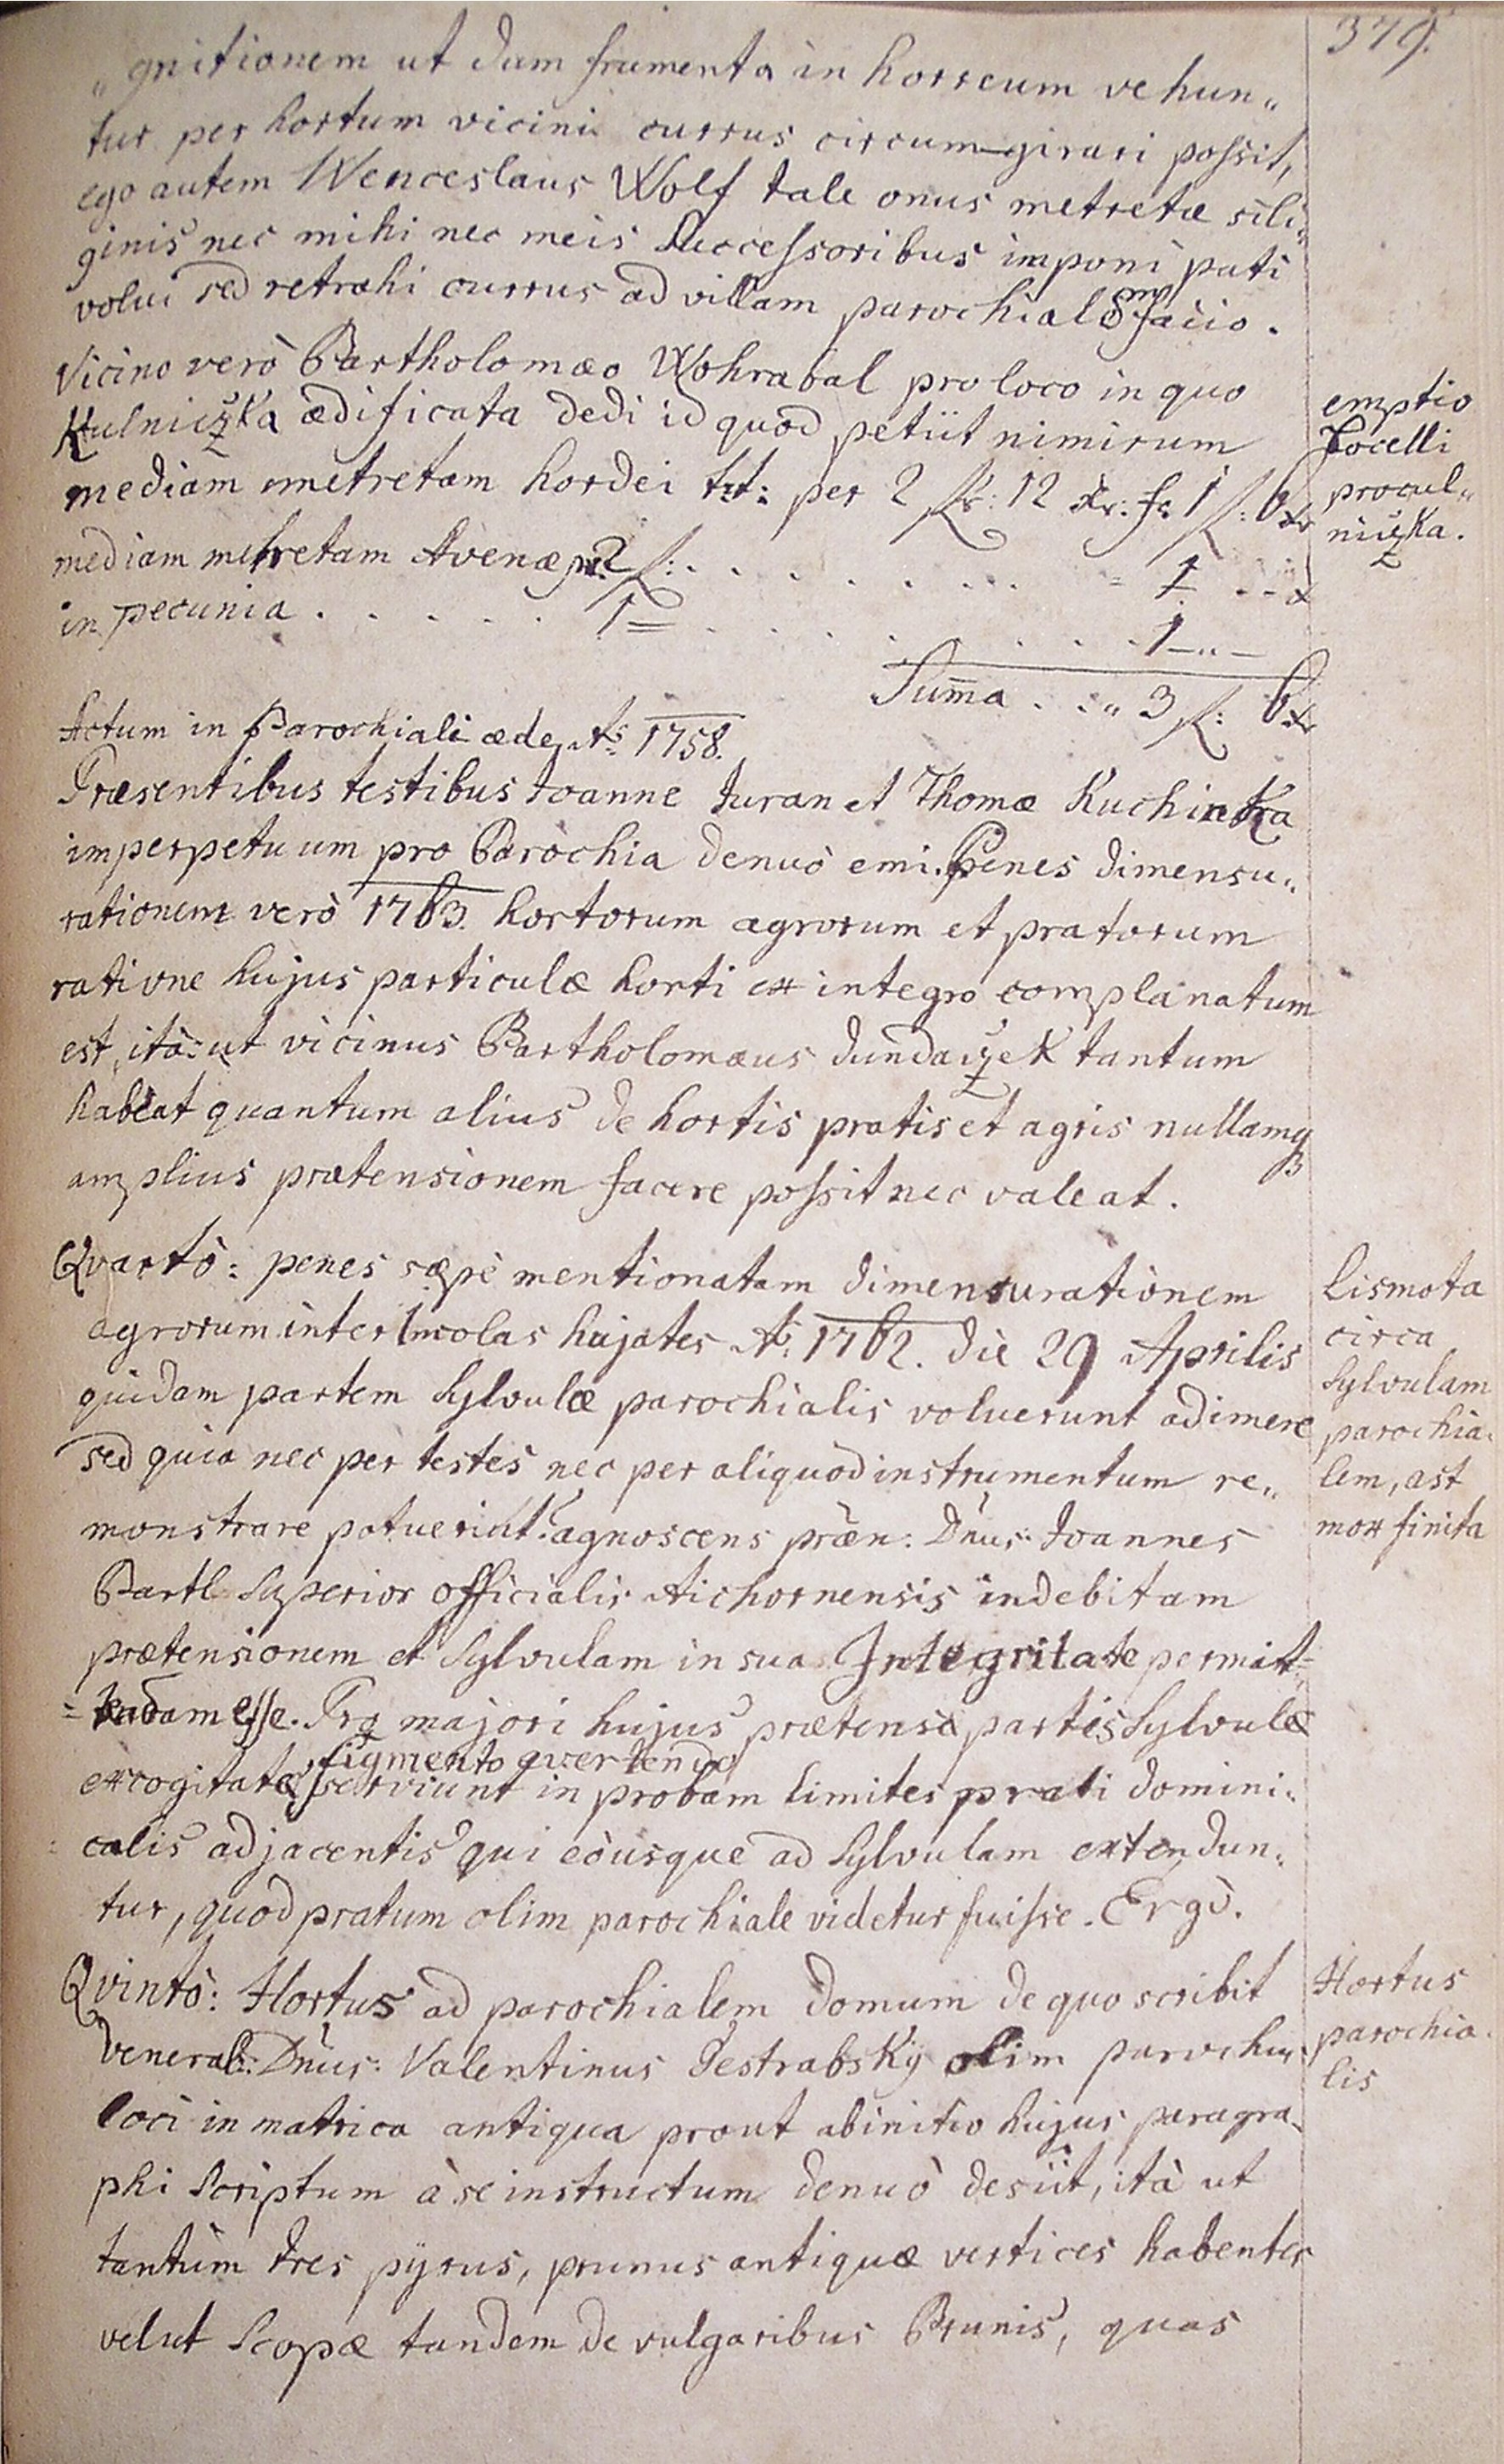 379.
„gnitionem ut dum frumenta in horreum vehun„
tur per hortum vicini currus circum-girari possit,
ego autem Wenceslaus Wolf tale onus metretæ sili„
ginis nec mihi nec meis Successoribus imponi pati
volui sed retrahi currus ad villam parochialem facio.
Vicino verò Bartholomæo Wohrabal pro loco in quo
Kulniczka ædificata dedi id quod petiit nimirum
mediam metretam hordei tt: per 2 fl: 12 xr: fc 1 fl: 6 xr
mediam metretam Avenæ pr. 2 fl: . . . . . . . . . 1 . - -
in pecunia . . . . . 1 = . . . . . . . 1 - „ -
Summa . . „ 3 fl: 6 xr
emptio
Locelli
procul„
niczka.
Actum in Parochiali æde Aº: 1758.
Præsentibus testibus Joanne Juran et Thomæ Kuchinka
imperpetuum pro Parochia denuò emi. Penes dimensu„
rationem verò 1763. hortorum agrorum et pratorum
ratione hujus particulæ horti ex integro complanatum
est, ità ut vicinus Bartholomæus Dundaczek tantum
habeat quantum alius de hortis pratis et agris nullamq3
amplius prætensionem facere possit nec valeat.
Qvartò: penes sæpè mentionatam dimensurationem
agrorum inter Incolas hujates Aº: 1762. die 29 Aprilis
quidam partem Sylvulæ parochialis voluerunt adimere
sed quia nec per testes nec per aliquod instrumentum re„
monstrare potuerint: agnoscens præn: Dnus: Joannes
Bartl Superior Officialis Aichornensis indebitam
prætensionem et Sylvulam in sua Integritate permit=
=tendam esse. Pro majori hujus prætensæ partis Sylvulæ
figmento avertendo
excogitatæ serviunt in probam limites prati domini:
calis adjacentis qui eòusque ad Sylvulam extendun:
tur, quod pratum olim parochiale videtur fuisse. Ergò.
Lis mota
circa
Sylvulam
parochia:
lem, ast
mox finita
Qvintò: Hortus ad parochialem domum de quo scribit
venerab: Dnus: Valentinus Jestrabsky olim parochus
loci in matrica antiqua prout ab initio hujus paragra„
phi scriptum à se instructum denuò desiit, ità ut
tantùm tres pyrus, prunus antiquæ vertices habentes
velut Scopæ tandem de vulgaribus Prunis, quas
Hortus
parochia:
lis